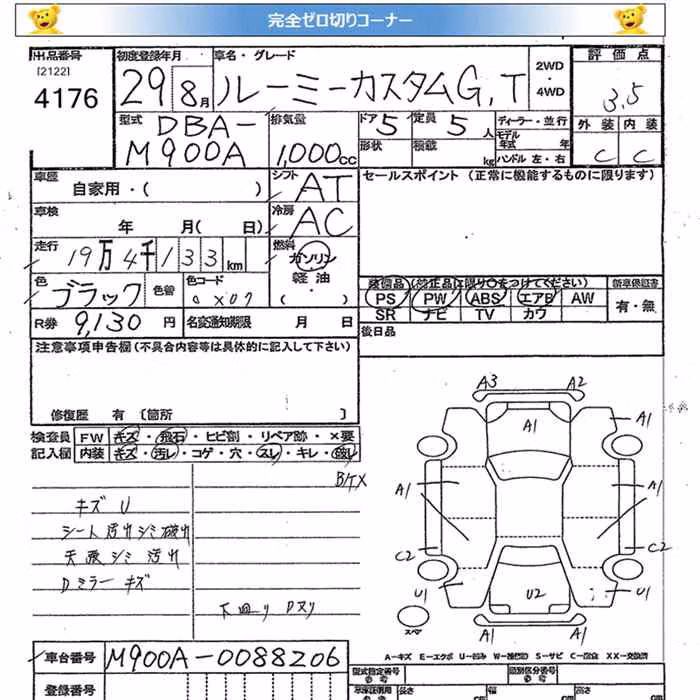 完全ゼロ切りコーナー
出品番号
[2122]
4176
初度登録年月
29 8月
車名・グレード
ルーミーカスタムG,T
2WD
・
4WD
評価点
3.5
型式
DBA-
M900A
排気量
1,000cc
ドア 5
定員 5人
形状
積載 kg
ディーラー・並行
モデル
年式 年
ハンドル 左・右
外装 内装
C C
車歴
自家用・( )
シフト AT
セールスポイント (正常に機能するものに限ります)
車検
年 月( 日)
冷房 AC
走行
19万4千133km
燃料
ガソリン
軽油
・( )
色 ブラック
色替
色コード
X07
装備品(純正品に限り○をつけてください)
新車保証書
PS PW ABS エアB AW
SR ナビ TV カワ
有・無
R券 9,130円
名変通知期限 月 日
後日品
注意事項申告欄(不具合内容等は具体的に記入して下さい)
修復歴 有〔箇所 〕
検査員
記入欄
FW キズ・飛石・ヒビ割・リペア跡・×要
内装 キズ・汚レ・コゲ・穴・スレ・キレ・破レ
キズ U
シート 汚れ シミ 破れ
天張 シミ 汚れ
Dミラー キズ
下回り
A3 A2
A1
A1
A1
A1
C2
C2
U1
U2
U1
スペア
A1
A1
A-キズ E-エクボ U-凹み S-サビ XX-交換済
車台番号 M900A-0088206
登録番号
型式指定番号
参考
類別区分番号
参考
長さ
cm
幅
cm
高さ
cm